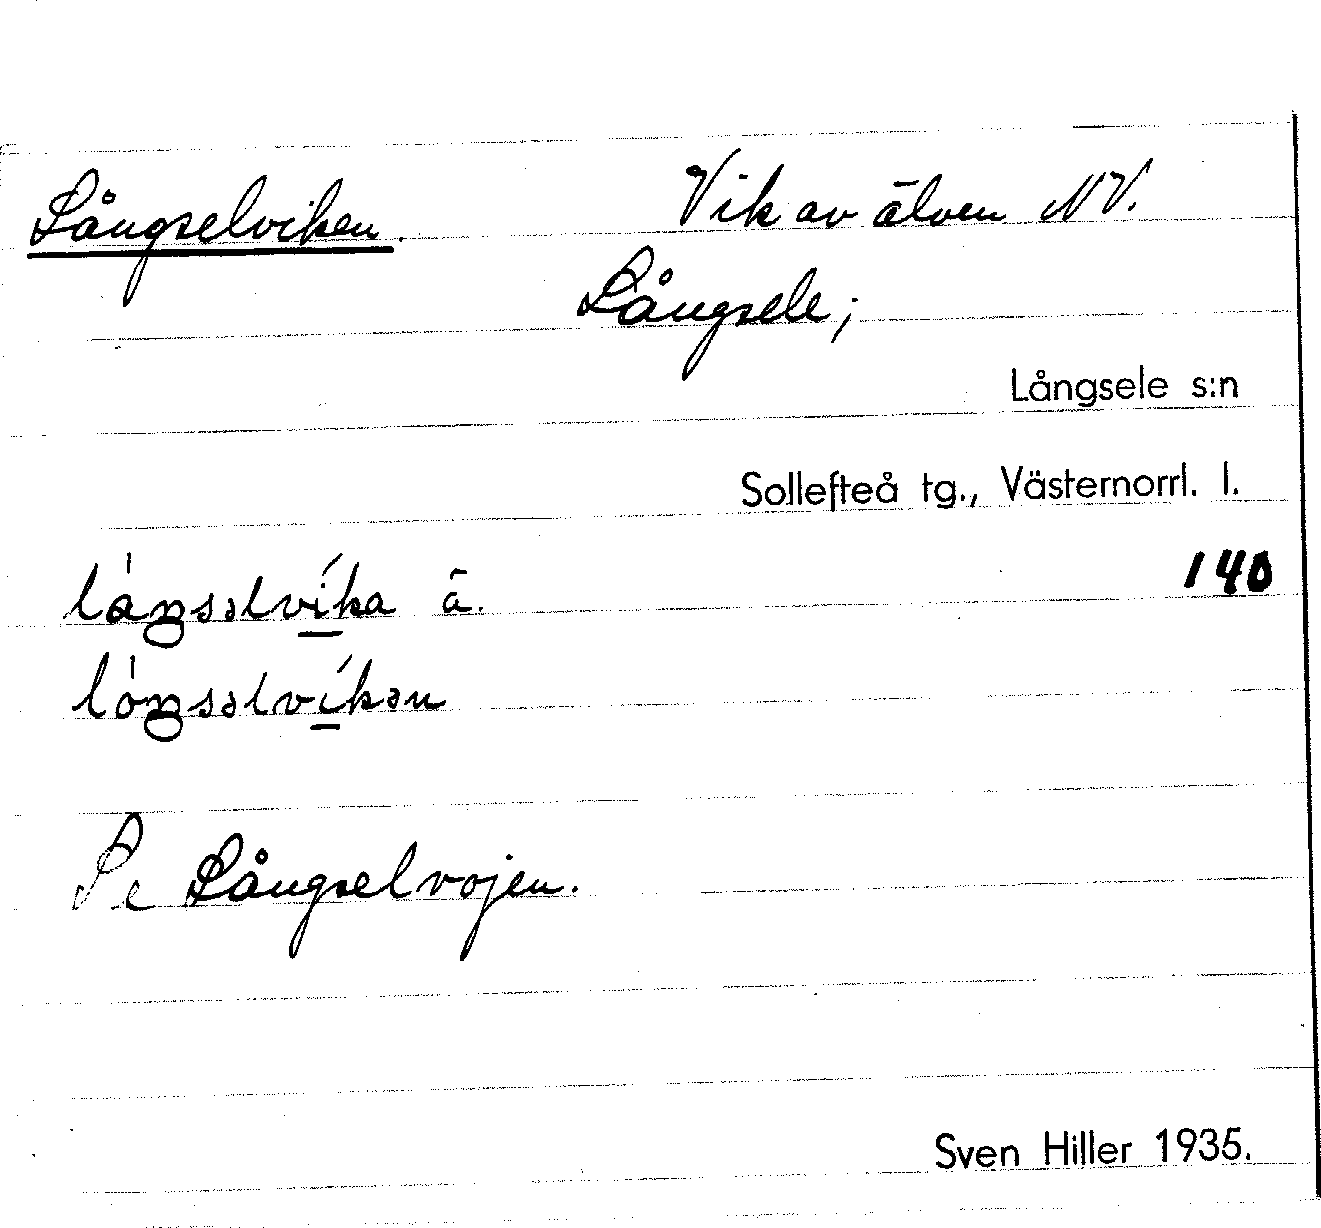 Långselviken. Vik av älven NV.
Långsele;
Långsele s:n
Sollefteå tg., Västernorrl. l.
140
láŋsəlvíka ä.
lóŋsəlvíkən
Se Långselvojen.
Sven Hiller 1935.